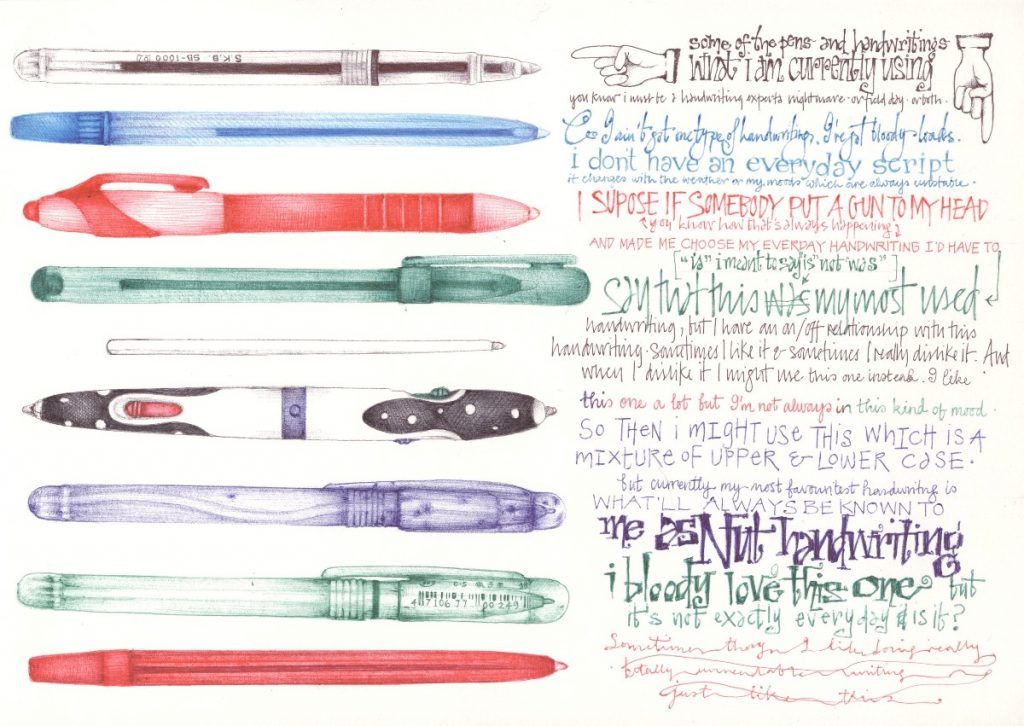 S.K.B. SB-1000
some of the pens and handwritings
what i am currently using
you know i must be a handwriting experts nightmare. or field day. or both.
Cos I ain't got one type of handwriting. I've got bloody loads.
i don't have an everyday script
it changes with the weather or my moods which are always unstable.
I SUPOSE IF SOMEBODY PUT A GUN TO MY HEAD
(you know how that's always happening)
AND MADE ME CHOOSE MY EVERDAY HANDWRITING I'D HAVE TO
["is" i meant to say "is" not "was"]
say that this was my most used
handwriting, but I have an on/off relationship with this
handwriting. Sometimes I like it & sometimes I really dislike it. And
when I dislike it I might use this one instead. I like
this one a lot but I'm not always in this kind of mood.
SO THEN i MIGHT USE THIS WHICH IS A
MIXTURE OF UPPER & LOWER CASE.
but currently my most favouritest handwriting is
WHAT'LL ALWAYS BE KNOWN TO
me as Nut handwriting
i bloody love this one but
it's not exactly everyday is it?
Sometimes though I like doing really
totally unreadable writing
just like this
4 710677 00249